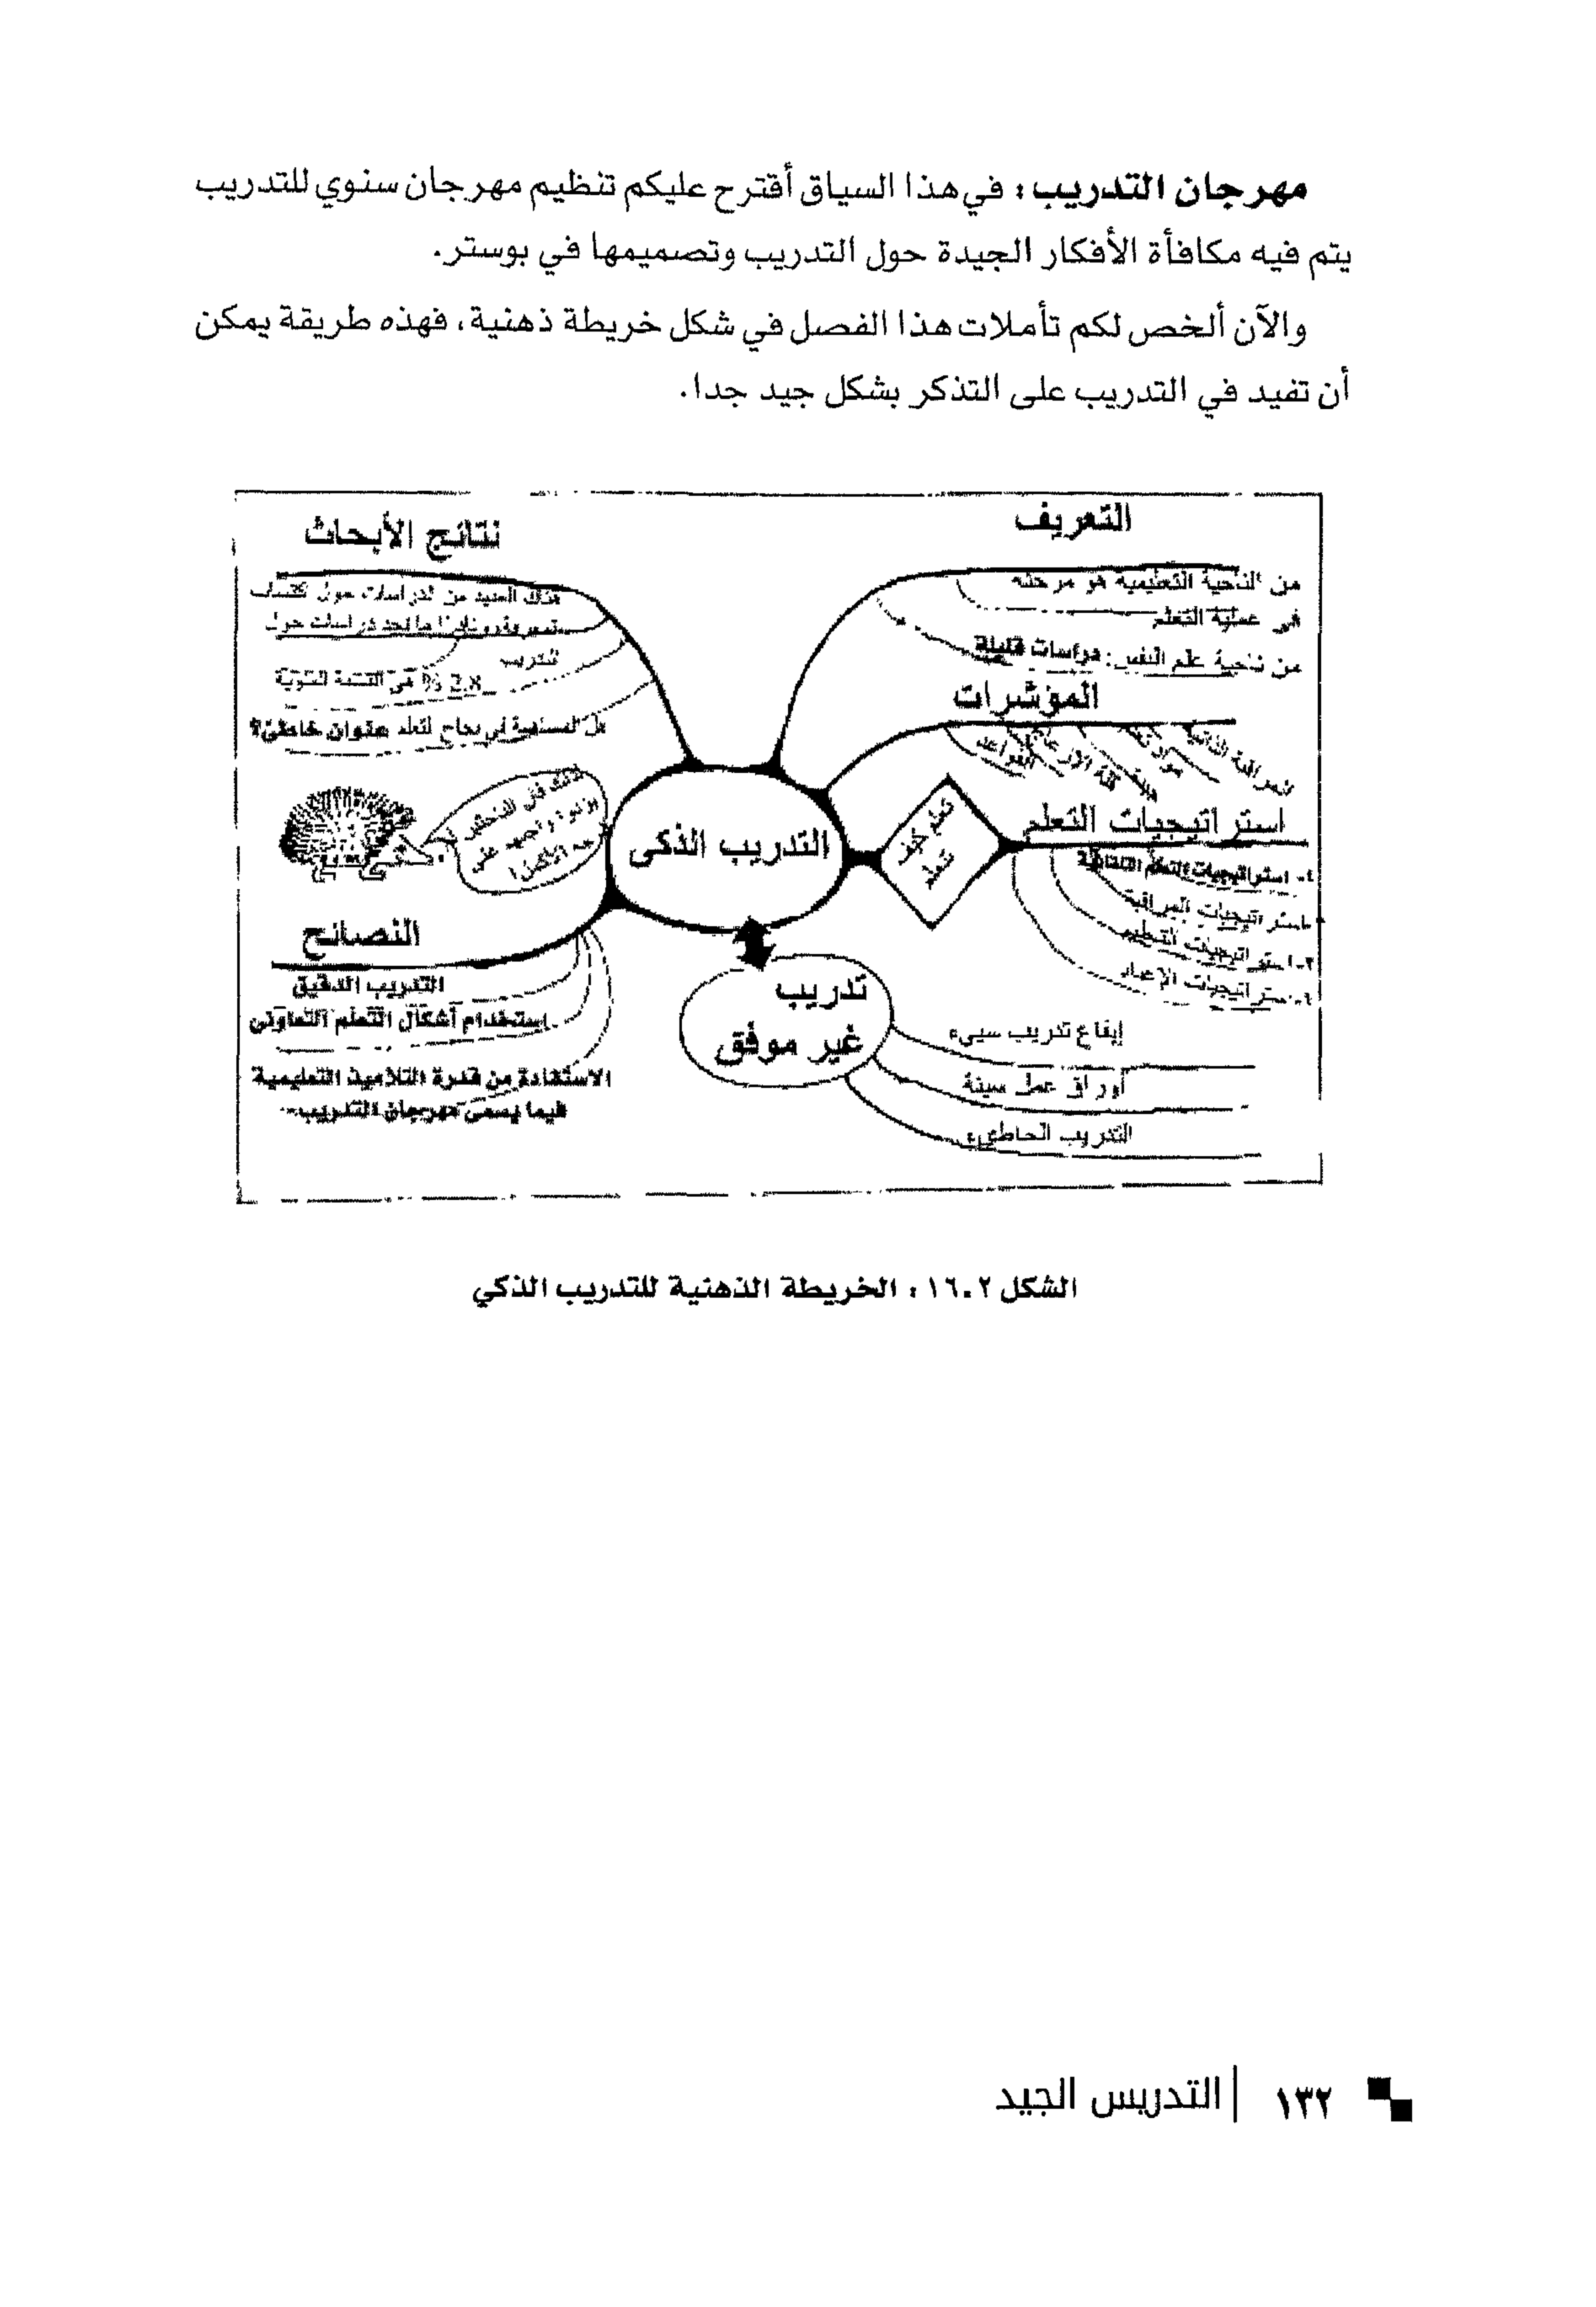 مهرجان التدريب: في هذا السياق أقترح عليكم تنظيم مهرجان سنوي للتدريب
يتم فيه مكافأة الأفكار الجيدة حول التدريب وتصميمها في بوستر.
والآن ألخص لكم تأملات هذا الفصل في شكل خريطة ذهنية، فهذه طريقة يمكن
أن تفيد في التدريب على التذكر بشكل جيد جدا.
التعريف
من الناحية التعليمية هو مرحلة
في عملية التعلم
من ناحية علم النفس: دراسات قليلة
المؤشرات
استراتيجيات التعلم
استراتيجيات المراقبة
استراتيجيات التنظيم
تعلم كيف
تتعلم
نتائج الأبحاث
هناك العديد من الدراسات حول
دراسات حول
التدريب
2,8 % في
عنوان خاطئ؟
التدريب الذكى
النصائح
التدريب الدقيق
استخدام أشكال التعلم التعاونى
الاستفادة من قدرة التلاميذ التعليمية
فيما يسمى مهرجان التدريب
تدريب
غير موفق
إيقاع تدريب سيىء
أوراق عمل سيئة
التدريب الخاطىء
الشكل ١٦.٢ : الخريطة الذهنية للتدريب الذكي
١٣٢ | التدريس الجيد